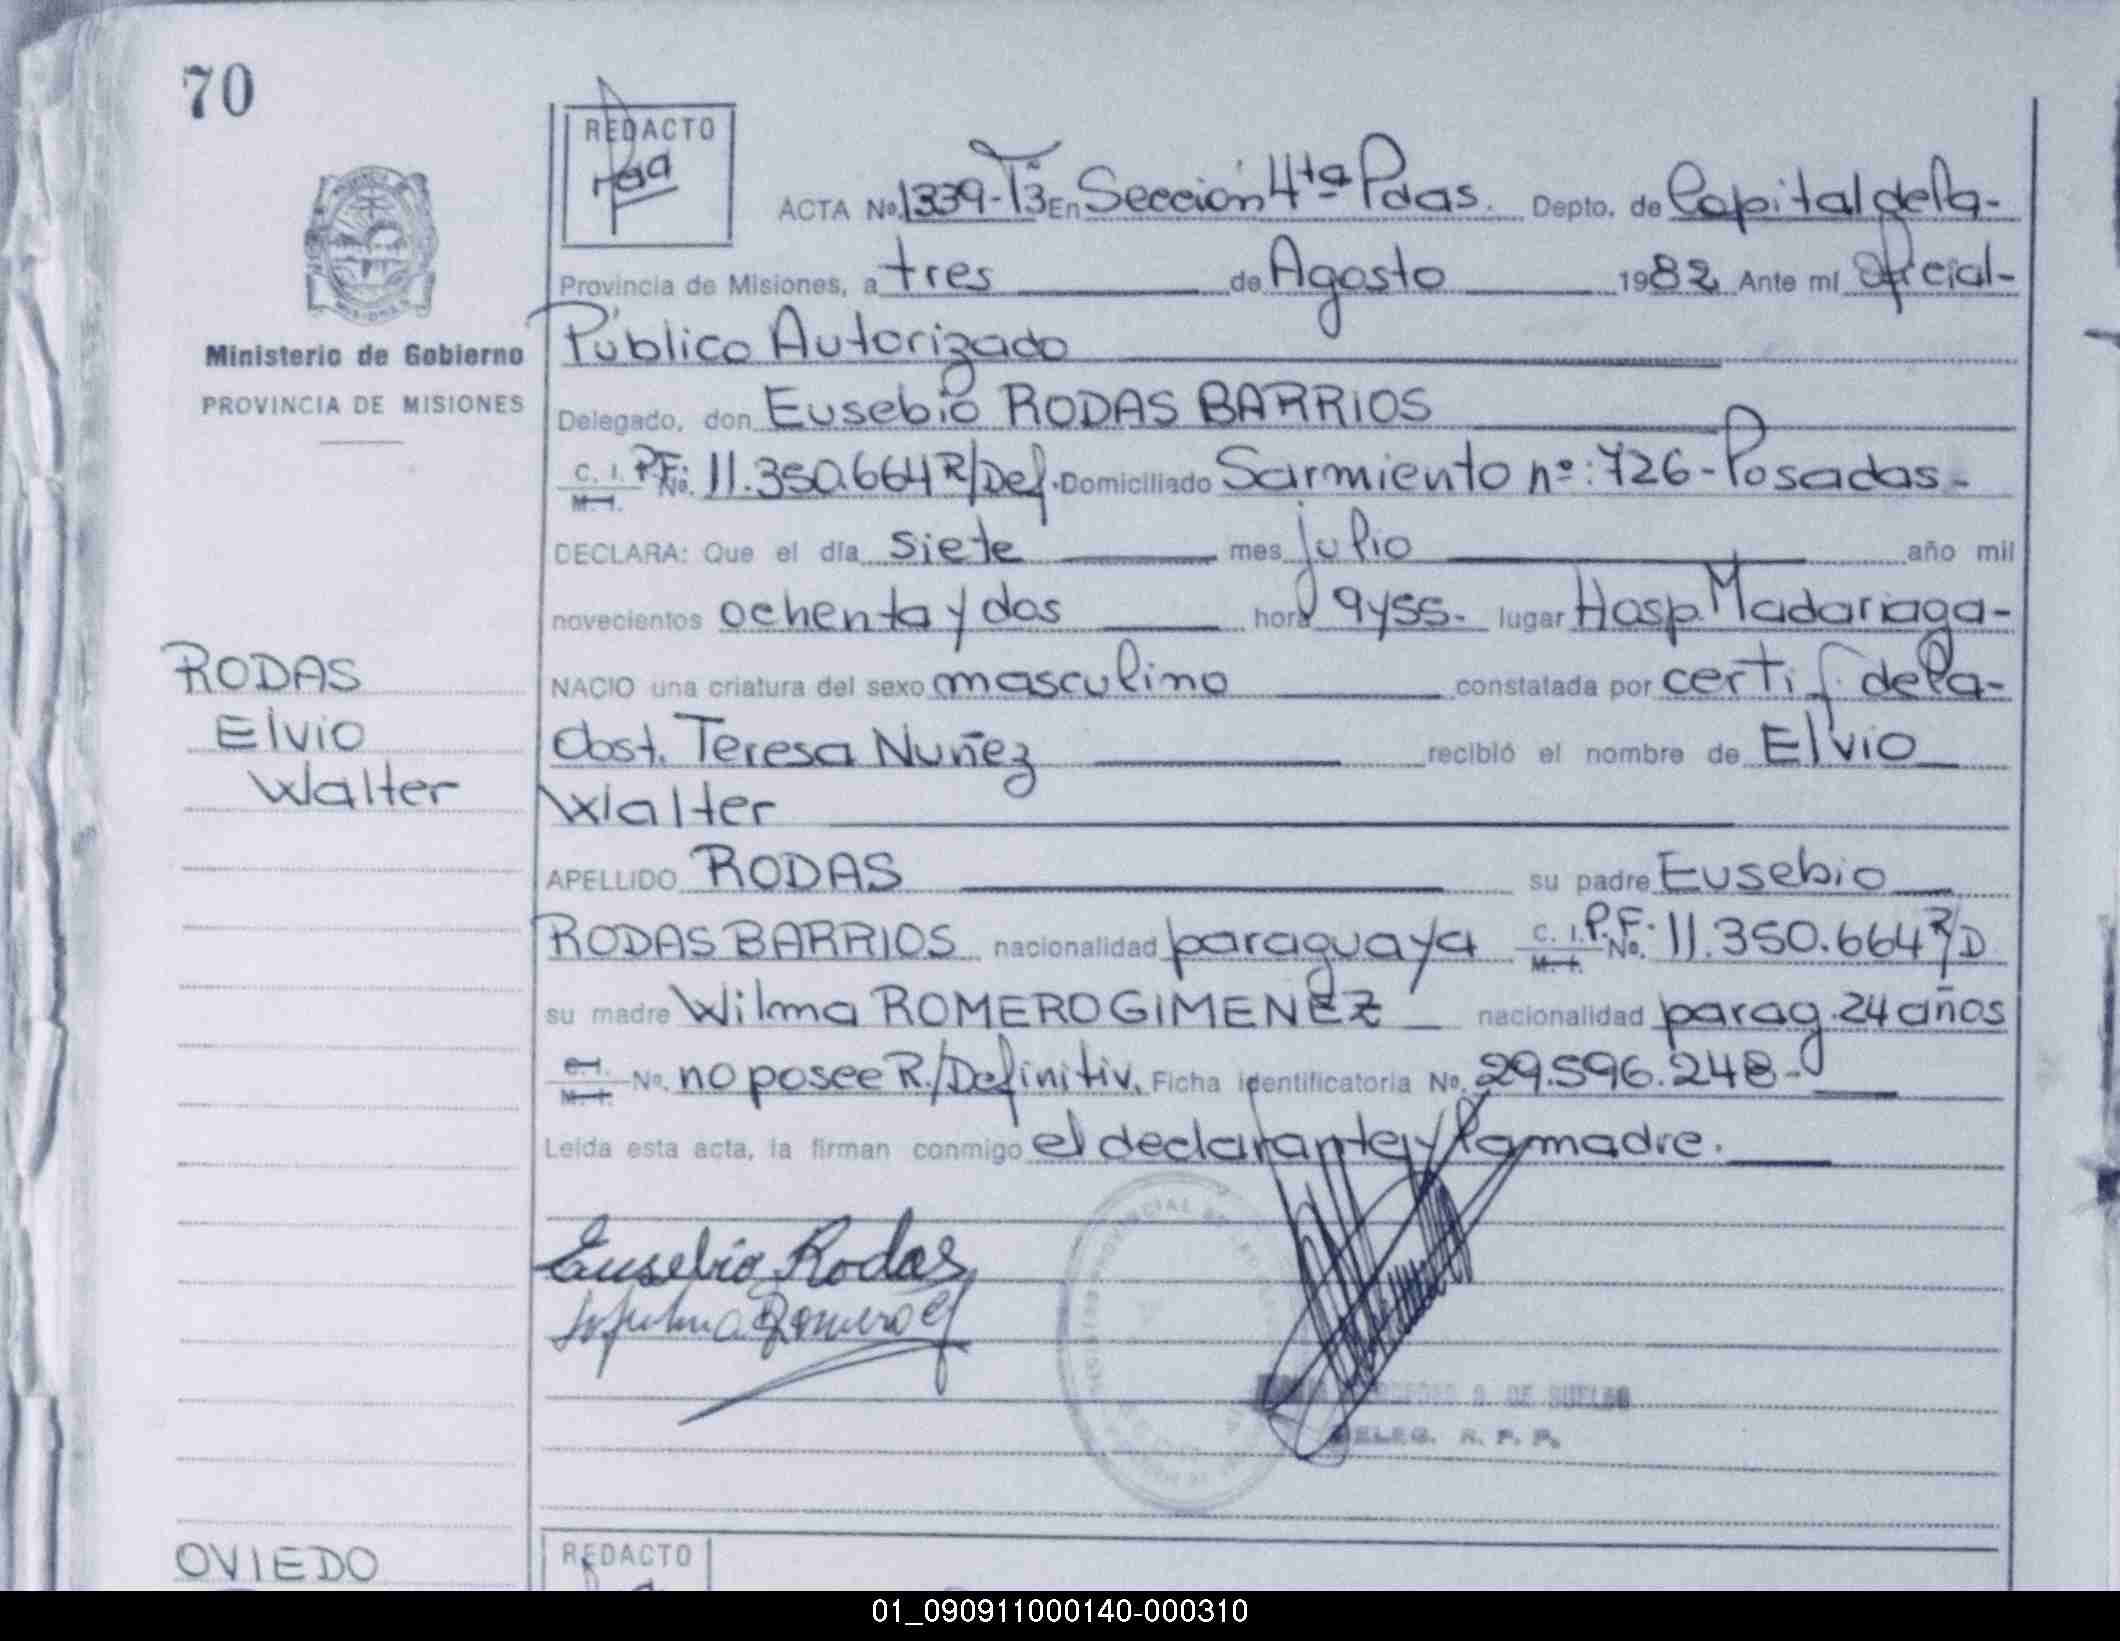 70
REDACTO
ACTA No. 1339-T3 En Sección 4ta Pdas. Depto. de Capital de la-
Provincia de Misiones, a tres de Agosto 1982 Ante mí Oficial-
Público Autorizado
Ministerio de Gobierno
PROVINCIA DE MISIONES
Delegado, don Eusebio RODAS BARRIOS
C. I. P.F: No. 11.350.664 R/Def. Domiciliado Sarmiento nº: 726-Posadas-
M. I.
DECLARA: Que el día siete mes julio año mil
novecientos ochenta y dos hora 9y55. lugar Hosp. Madariaga-
RODAS
Elvio
Walter
NACIO una criatura del sexo masculino constatada por certif. de la-
Obst. Teresa Nuñez recibió el nombre de Elvio
Walter
APELLIDO RODAS su padre Eusebio
RODAS BARRIOS nacionalidad paraguaya C. I. P.F. No. 11.350.664 R/D
M. I.
su madre Wilma ROMERO GIMENEZ nacionalidad parag. 24 años
C. I. No. no posee R./Definitiv. Ficha identificatoria No. 29.596.248-
M. I.
Leída esta acta, la firman conmigo el declarante y la madre.
Eusebio Rodas
Romero
DE SUELDO
DELEG. R. P. P.
OVIEDO
REDACTO
01_090911000140-000310